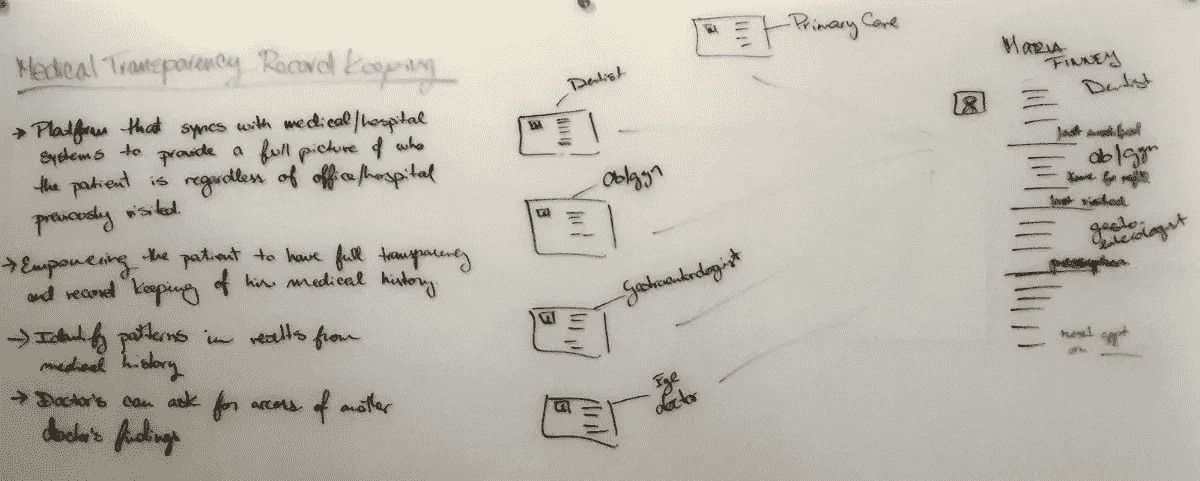 Medical Transparency Record Keeping
→ Platform that syncs with medical/hospital
systems to provide a full picture of who
the patient is regardless of office/hospital
previously visited.
→ Empowering the patient to have full transparency
and record keeping of his medical history
→ Identify patterns in results from
medical history
→ Doctor's can ask for access of another
doctor's findings
Primary Care
Dentist
Ob/gyn
Gastroenterologist
Eye
doctor
MARIA
FINNEY
Dentist
last modified
Ob/gyn
last visited
gastro-
enterologist
next appt
on